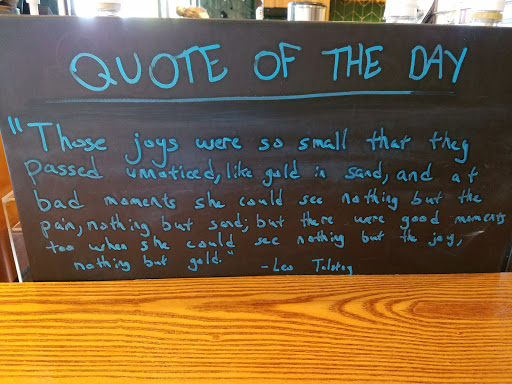 QUOTE OF THE DAY
"Those joys were so small that they
passed unnoticed, like gold in sand, and at
bad moments she could see nothing but the
pain, nothing but sand; but there were good moments
too when she could see nothing but the joy,
nothing but gold." -Leo Tolstoy